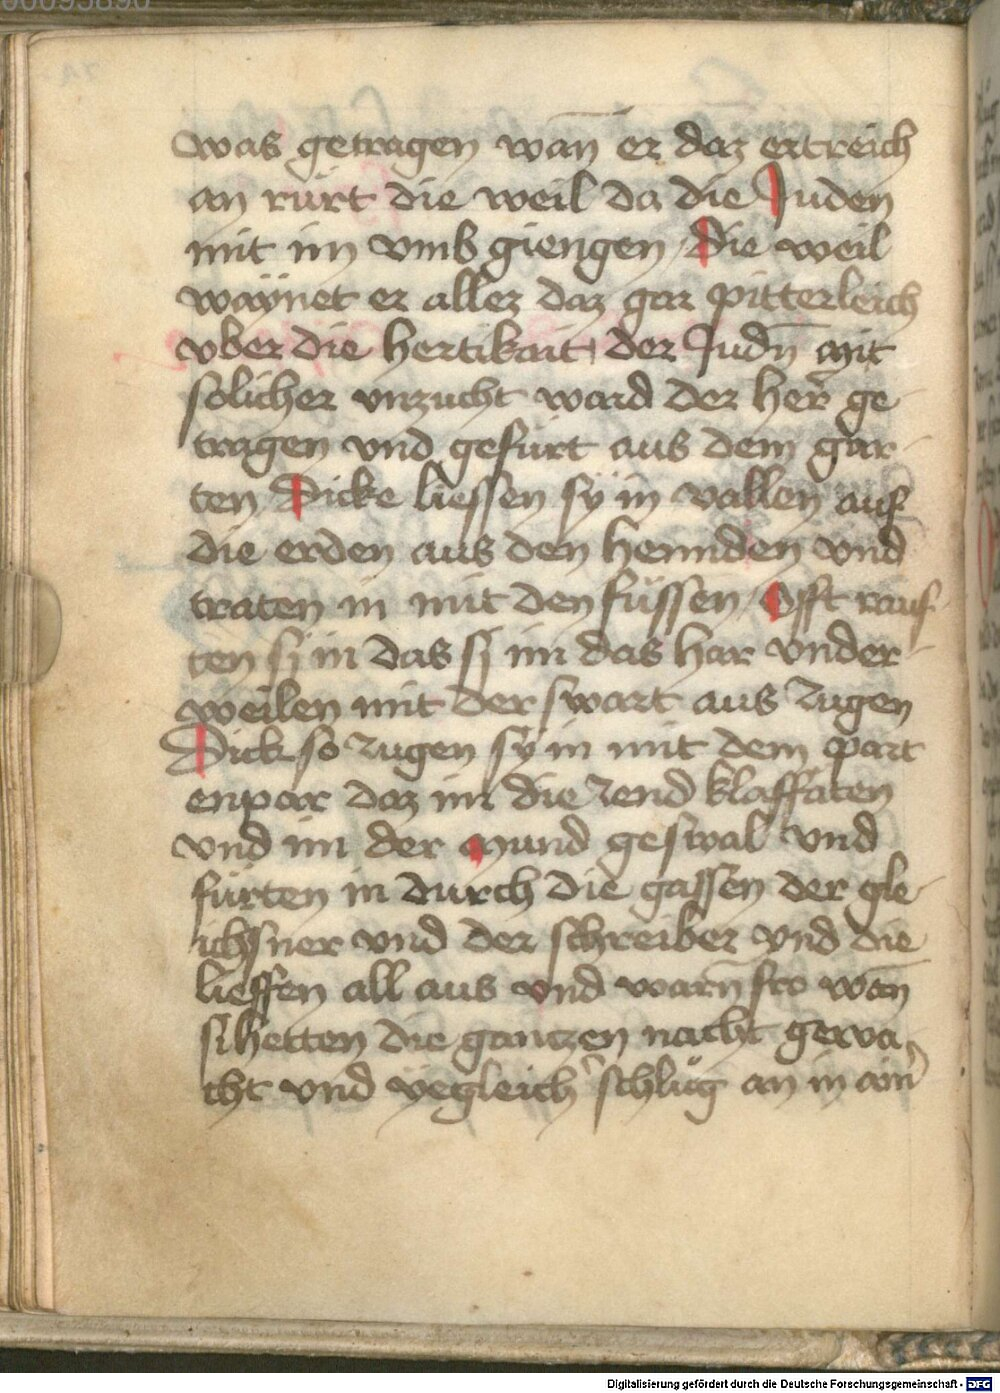 was getragen wan̄ er daz ertreich
an rürt die weil da die Juden
mit im vmb giengen Die weil
waÿnet er allez daz gar pitterleich
vber die hertikait der Judn̄ mit
solicher vnzucht ward der her̄ ge
tragen vnd gefürt aus dem gar
ten Dicke liessen sÿ in vallen auf
die erden aus den hennden vnd
traten in mit den füssen Offt rauf
ten si in das si im das har vnder
weilen mit der swart aus zugen
Dick so zugen sÿ in mit dem part
enpor daz im die zend klaffaten
vnd im der mund geswal vnd
fürten in durch die gassen der gle
ichsner vnd der schreiber vnd die
lieffen all aus vnd warn̄ fro wan̄
si hetten die gantzen nacht gewa
cht vnd yegleich' schlüg an in ain'